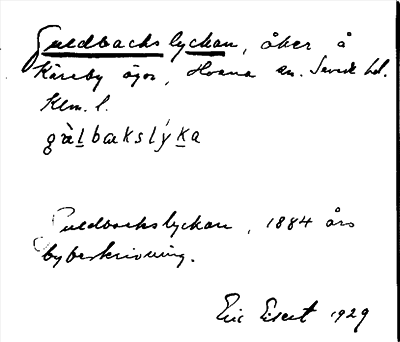 Guldbackslyckan, åker å
Kåreby ägor, Hvena sn. Sevede hd.
Klm. l.
gàlbakslýka
Guldbackslyckan, 1884 års
bybeskrivning.
Eric Elsert 1929